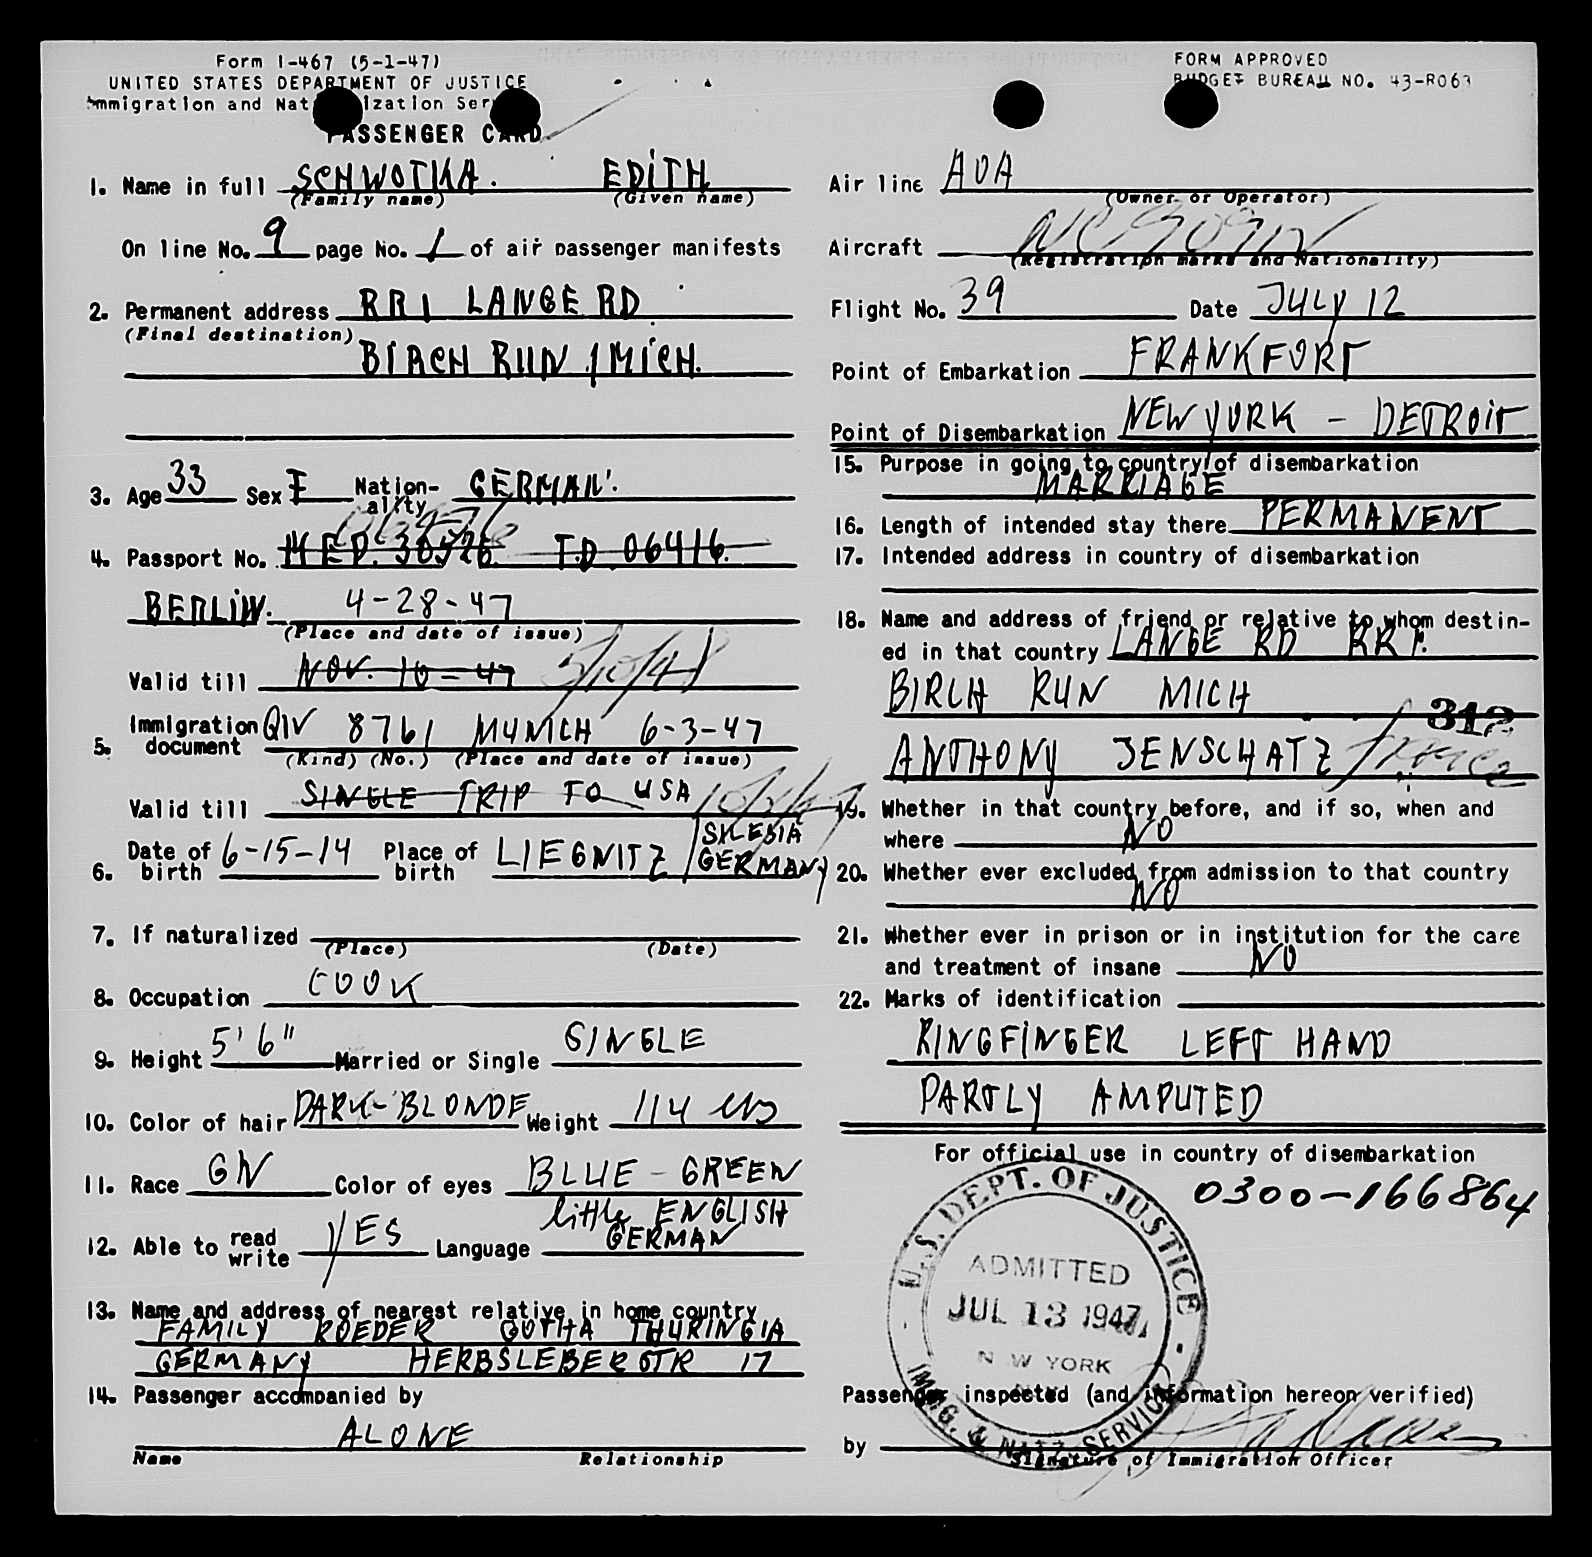 Form I-467 (5-1-47)
UNITED STATES DEPARTMENT OF JUSTICE
PASSENGER CARD
FORM APPROVED
BUDGET BUREAU NO. 43-R063
1. Name in full SCHWOTKA. EDITH
(Family name) (Given name)
On line No. 9 page No. 1 of air passenger manifests
2. Permanent address RR1 LANGE RD
(Final destination)
BIRCH RUN / MICH.
3. Age 33 Sex F Nationality GERMAN
4. Passport No. M.E.P. 30526 T.D 06416.
BERLIN. 4-28-47
(Place and date of issue)
Valid till NOV. 10-47 5/10/48
5. Immigration document QIV 8761 MUNICH 6-3-47
(Kind) (No.) (Place and date of issue)
Valid till SINGLE TRIP TO USA
6. Date of birth 6-15-14 Place of birth LIEGNITZ / SILESIA GERMANY
7. If naturalized
(Place) (Date)
8. Occupation COOK
9. Height 5' 6" Married or Single SINGLE
10. Color of hair DARK-BLONDE Weight 114 lbs
11. Race GN Color of eyes BLUE-GREEN
12. Able to read write YES Language little ENGLISH GERMAN
13. Name and address of nearest relative in home country
FAMILY ROEDER GOTHA THURINGIA
GERMANY HERBSLEBERSTR 17
14. Passenger accompanied by
ALONE
Name Relationship
Air line AOA
(Owner or Operator)
Aircraft NC 90911
(Registration marks and Nationality)
Flight No. 39 Date JULY 12
Point of Embarkation FRANKFURT
Point of Disembarkation NEW YORK - DETROIT
15. Purpose in going to country of disembarkation
MARRIAGE
16. Length of intended stay there PERMANENT
17. Intended address in country of disembarkation
18. Name and address of friend or relative to whom destin-
ed in that country LANGE RD RR1.
BIRCH RUN MICH
312
ANTHONY JENSCHATZ fiance
19. Whether in that country before, and if so, when and
where NO
20. Whether ever excluded from admission to that country
NO
21. Whether ever in prison or in institution for the care
and treatment of insane NO
22. Marks of identification
RINGFINGER LEFT HAND
PARTLY AMPUTED
For official use in country of disembarkation
0300-166864
U.S. DEPT. OF JUSTICE
ADMITTED
JUL 13 1947
N W YORK
IMMIG. & NATZ. SERVICE
Passenger inspected (and information hereon verified)
by
Signature of Immigration Officer